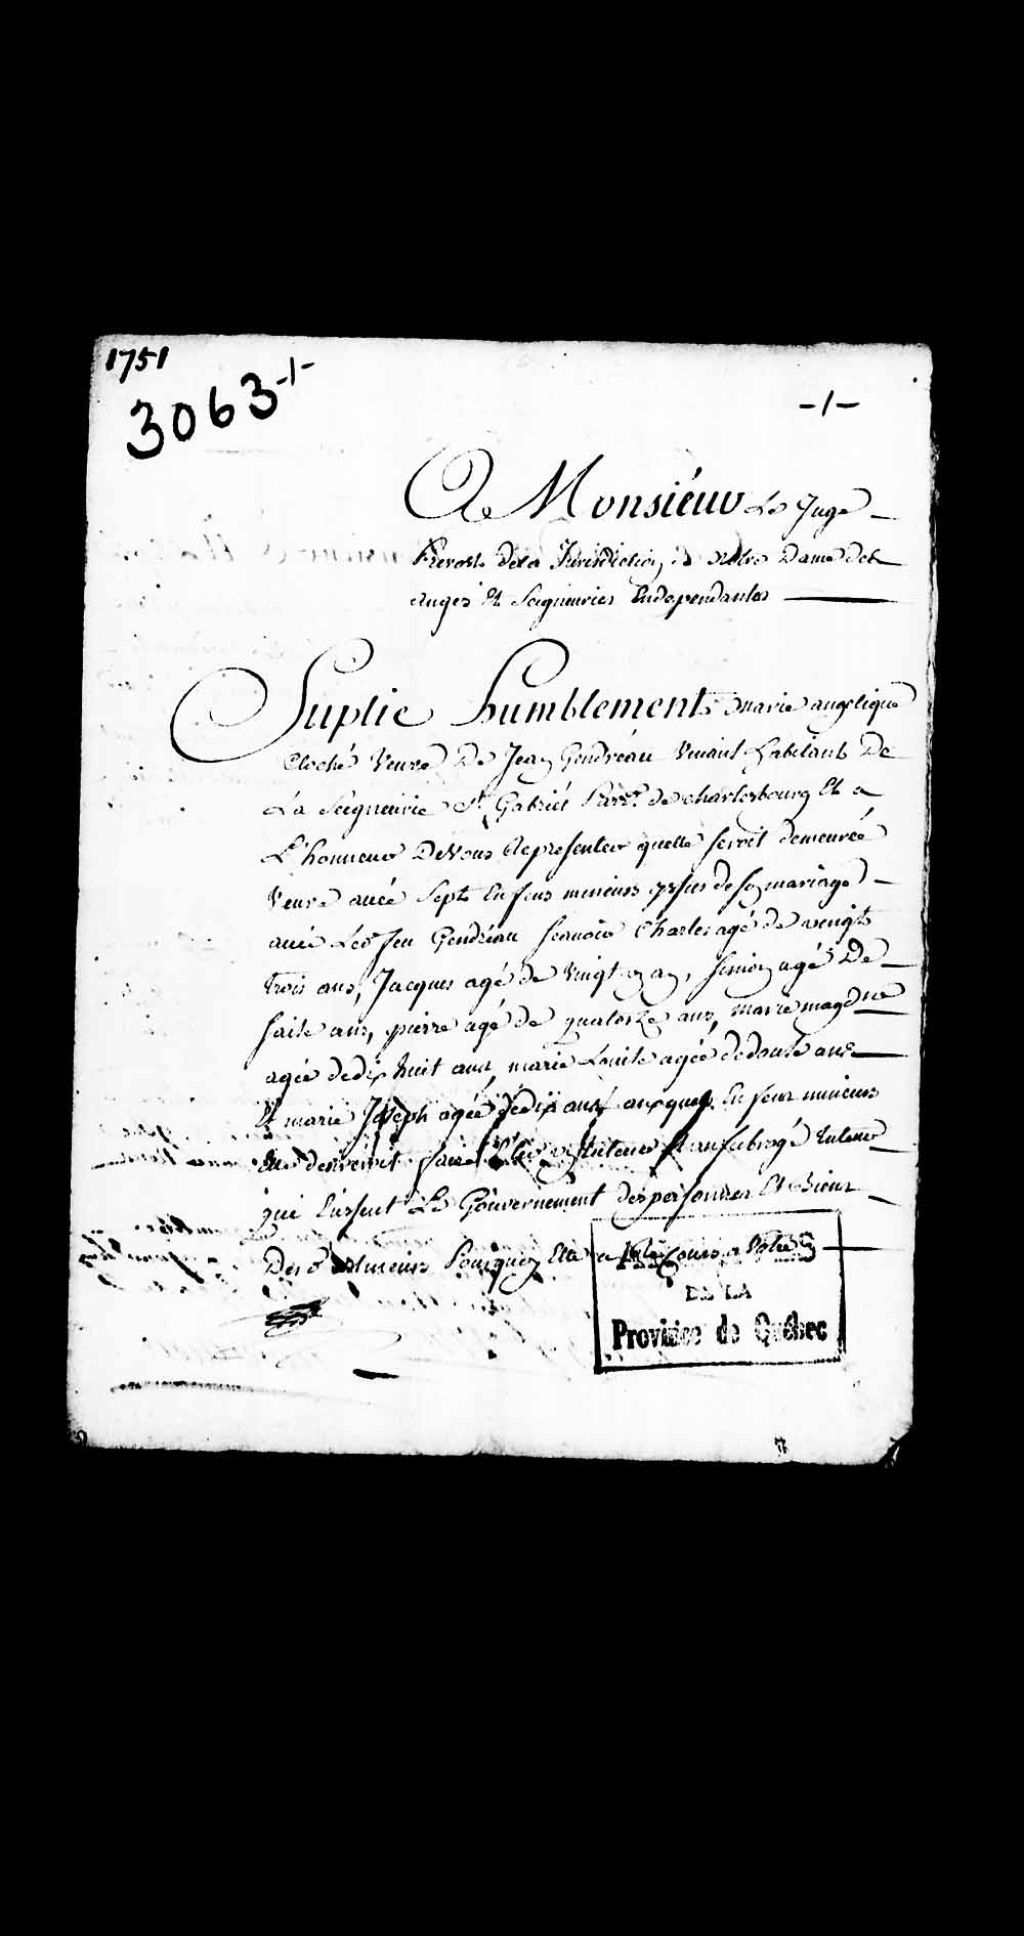 1751
3063-1-
-1-
A Monsieur Le Juge
Prevost de la Jurisdiction de notre Dame des
anges Et Seigneuries Independantes
Suplie humblement marie angelique
Cloché Veuve De Jean Gendreau Vivant habitant De
La Seigneurie St Gabriel de charlesbourg Et a
L'honneur De Vous Representer quelle seroit demeurée
Veuve avec Sept Enfens mineurs yssus de son mariage
avec Led feu Gendreau scavoir Charles agé de vingt
trois ans, Jacques agé de Vingt un an, simon agé De
saise ans, pierre agé de quatorze ans, marie magdne
agée de dix huit ans, marie Louise agée de douse ans
Et marie Joseph agée de dix ans auxquels Enfens mineurs
Elle desireroit faire Elire un Tuteur Et un subrogé tuteur
qui Eussent Le Gouvernement des personnes Et Biens
Des d mineurs Pourquoy Elle a
DE LA
Province de Québec